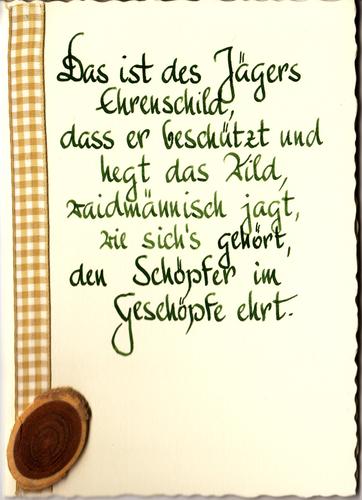 Das ist des Jägers
Ehrenschild,
dass er beschützt und
hegt das Wild,
waidmännisch jagt,
wie sich's gehört,
den Schöpfer im
Geschöpfe ehrt.